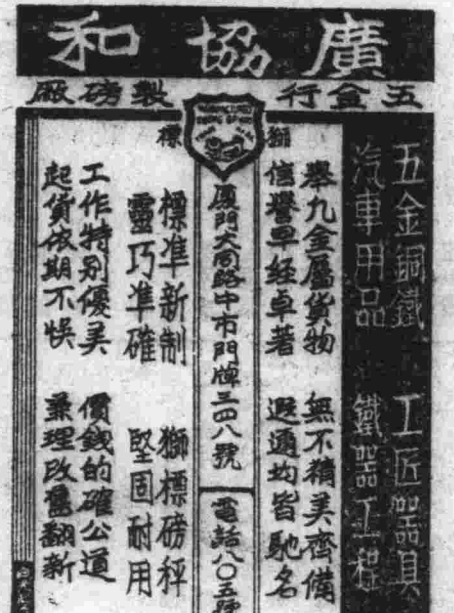 廣協和
五金行
製磅廠
獅標
五金銅鐵　工匠器具
汽車用品　鐵器工程
舉凡金屬貨物　無不精美齊備
信譽早經卓著　遐邇均皆馳名
厦門大同路中市門牌三四八號
電話八〇五號
標準新制　獅標磅秤
靈巧準確　堅固耐用
工作特别優美　價錢的確公道
起貨依期不悞　兼理改舊翻新